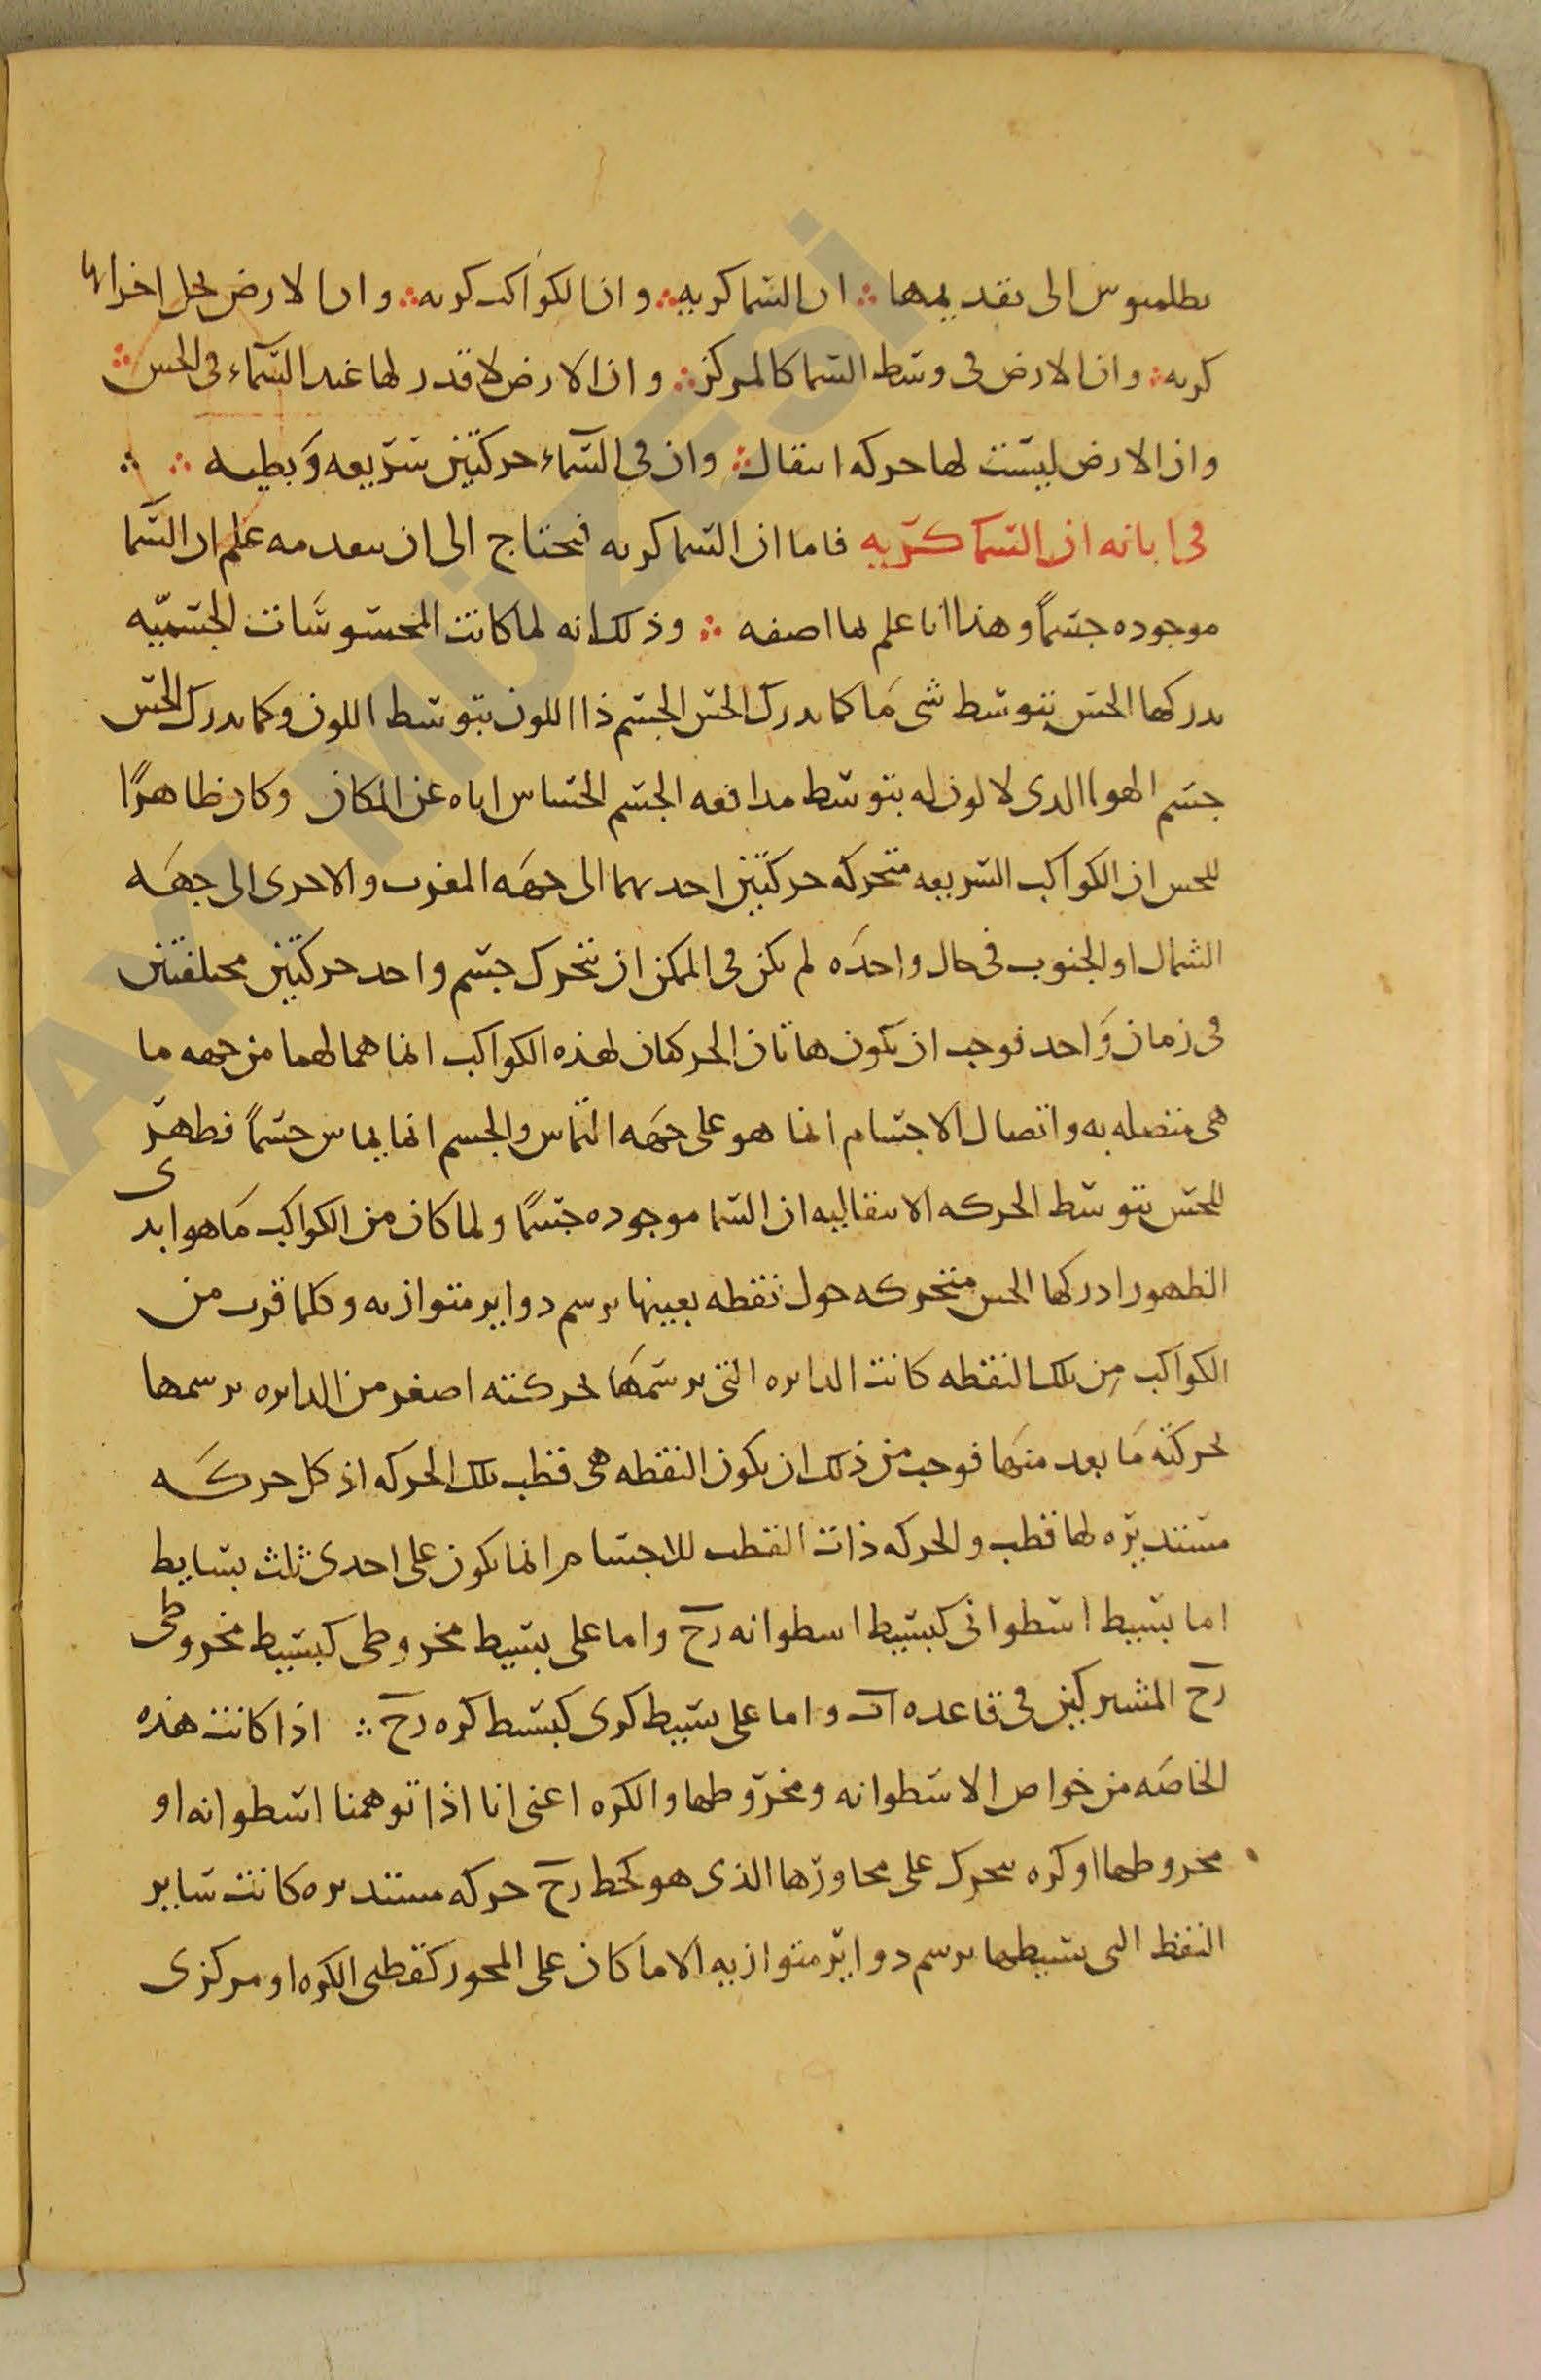 بطلميوس الى تقديمها ∴ ان السما كريه ∴ وان الكواكب كريه ∴ وان الارض بكل اجزائها
كريه ∴ وان الارض فى وسط السما كالمركز ∴ وان الارض لا قدر لها عند السمآء فى الحس ∴
وان الارض ليست لها حركه انتقال ∴ وان فى السمآء حركتين سريعه وبطيه ∴ ∴
فى ابانه ان السما كريه فاما ان السما كريه فيحتاج الى ان يتقدمه علم ان السما
موجوده جسمًا وهذا انا علم لما اصفه ∴ وذلك انه لما كانت المحسوسات الجسميّه
يدركها الحس بتوسط شى ما كما يدرك الحس الجسم ذا اللون بتوسط اللون وكما يدرك الحس
جسم الهوا الذى لا لون له بتوسط مدافعه الجسم الحساس اياه عن المكان وكان ظاهرًا
للحس ان الكواكب السريعه متحركه حركتين احديهما الى جهه المغرب والاخرى الى جهه
الشمال او الجنوب فى حال واحده لم يكن فى الممكن ان يتحرك جسم واحد حركتين مختلفتين
فى زمان واحد فوجب ان يكون هاتان الحركتان لهذه الكواكب انما هما لهما من جهه ما
هى متصله به واتصال الاجسام انما هو على جهه التماس والجسم انما يماس جسمًا فظهر
للحس بتوسط الحركه الانتقاليه ان السما موجوده جسمًا ولما كان من الكواكب ما هو ابدى
الظهور ادركها الحس متحركه حول نقطه بعينها يرسم دواير متوازيه وكلما قرب من
الكواكب من تلك النقطه كانت الدايره التى يرسمها بحركته اصغر من الدايره يرسمها
بحركته ما بعد منها فوجب من ذلك ان يكون النقطه هى قطب تلك الحركه اذ كل حركه
مستديره لها قطب والحركه ذات القطب للاجسام انما يكون على احدى ثلث بسايط
اما بسيط اسطوانى كبسيط اسطوانه رح واما على بسيط مخروطى كبسيط مخروطى
رح المشتركين فى قاعده اب واما على بسيط كرى كبسيط كره رح ∴ اذا كانت هذه
الخاصه من خواص الاسطوانه ومخروطها والكره اعنى انا اذا توهمنا اسطوانه او
مخروطها او كره يتحرك على محاورها الذى هو كخط رح حركه مستديره كانت ساير
النقط التى ببسيطها يرسم دواير متوازيه الا ما كان على المحور كقطبى الكره او مركزى